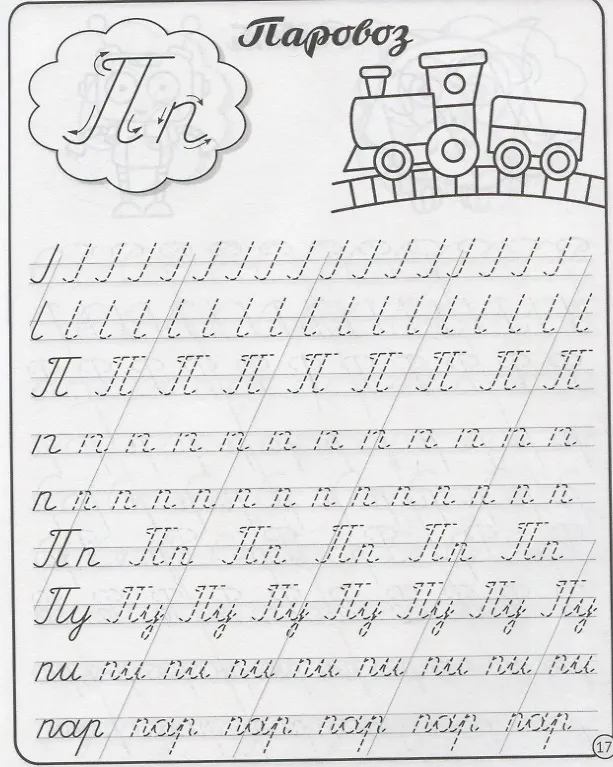 Паровоз
П п
П П П П П П П П П
п п п п п п п п п п п п
п п п п п п п п п п п п п п
Пп Пп Пп Пп Пп Пп
Пу Пу Пу Пу Пу Пу Пу Пу
пи пи пи пи пи пи пи пи пи
пар пар пар пар пар пар
17